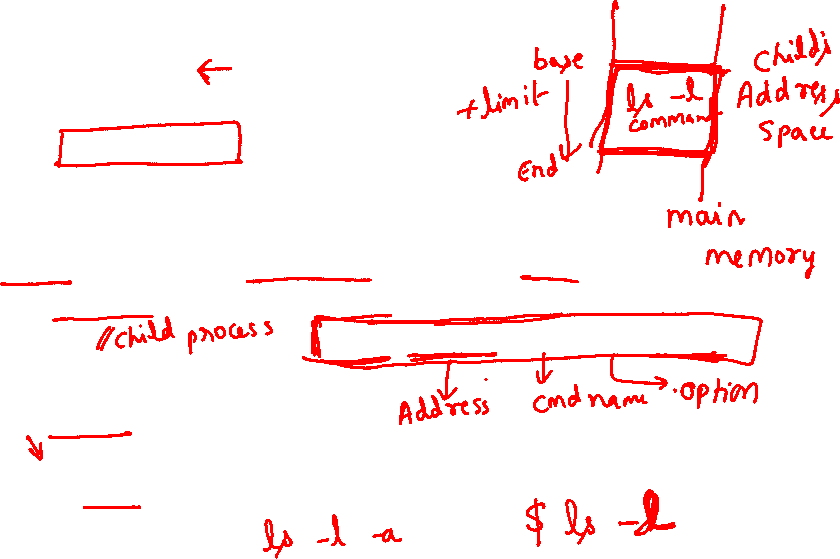 base
+limit
End
ls -l
command
Child's
Address
Space
main
memory
//Child process
Address
cmd name
option
ls -l -a
$ ls -l